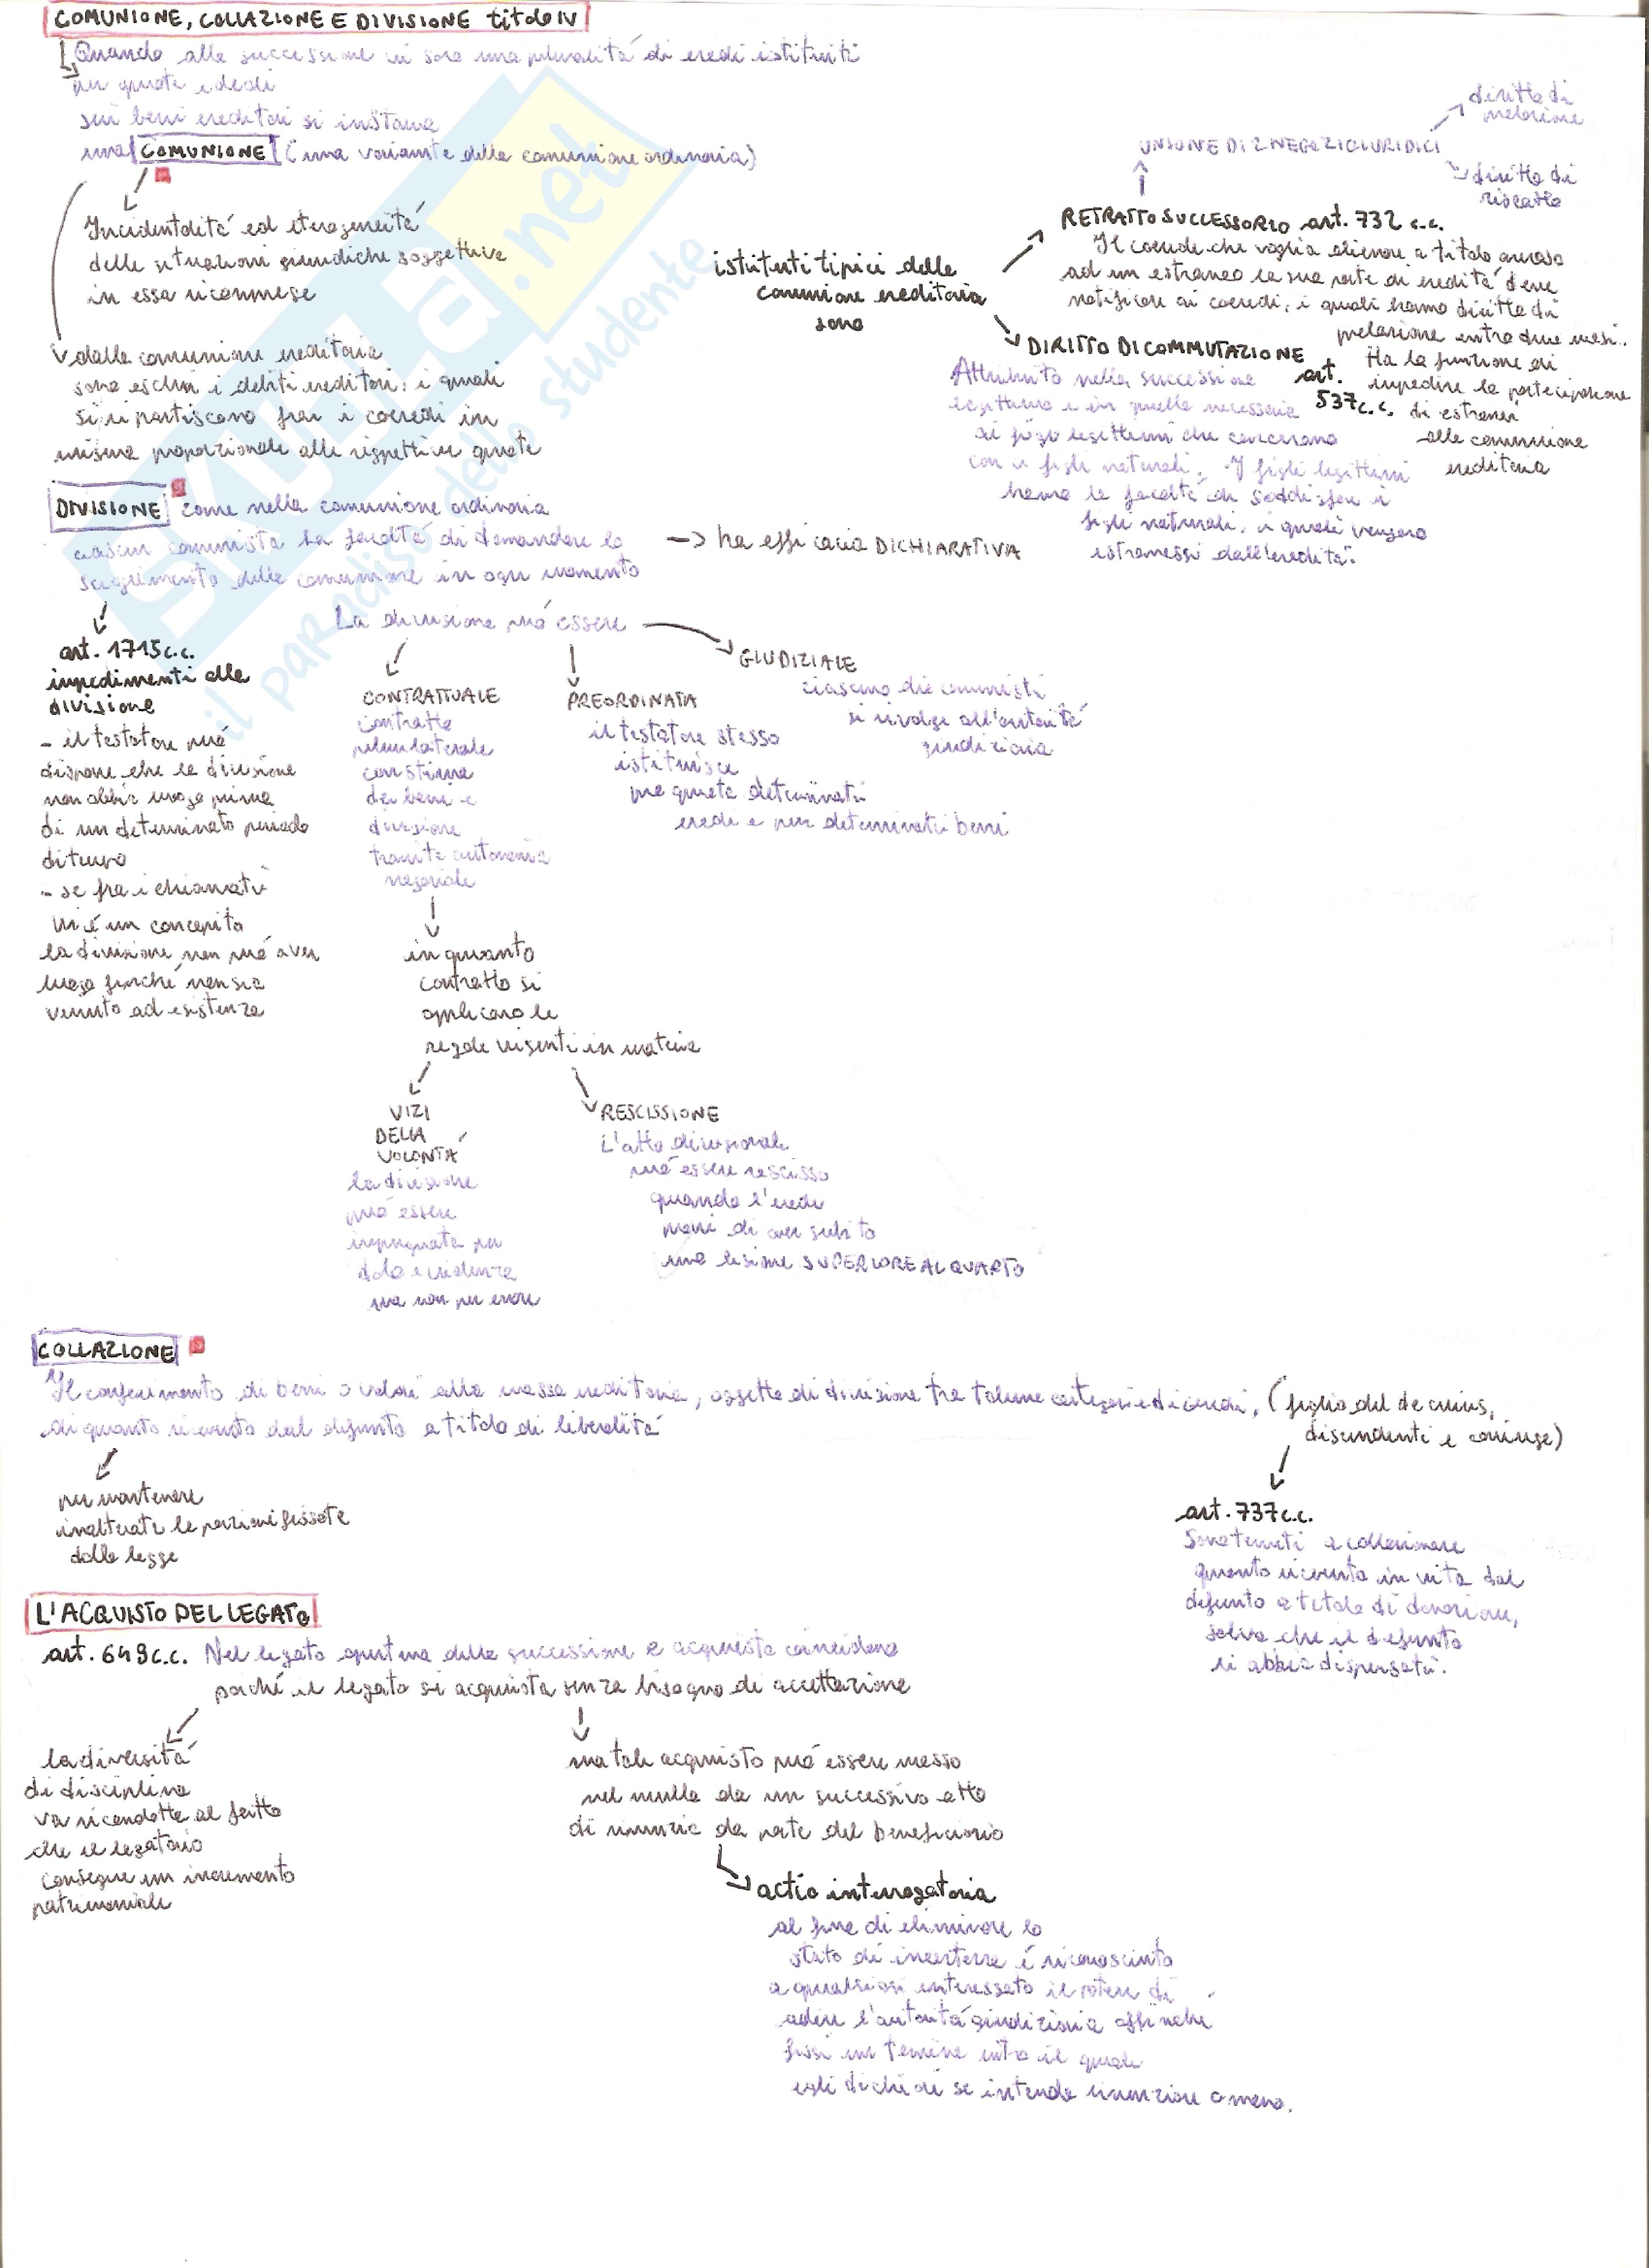 COMUNIONE, COLLAZIONE E DIVISIONE titolo IV
Quando alla successione vi sono una pluralità di eredi istituiti
per quote ideali
sui beni ereditari si instaura
una COMUNIONE (una variante della comunione ordinaria)
Incidentalità ed eterogeneità
delle situazioni giuridiche soggettive
in essa ricomprese
dalla comunione ereditaria
sono esclusi i debiti ereditari, i quali
si ripartiscono fra i coeredi in
misura proporzionale alle rispettive quote
istituti tipici della
comunione ereditaria
sono
UNIONE DI 2 NEGOZI GIURIDICI
diritto di
prelazione
diritto di
riscatto
RETRATTO SUCCESSORIO art. 732 c.c.
Il coerede che voglia alienare a titolo oneroso
ad un estraneo la sua parte di eredità deve
notificare ai coeredi, i quali hanno diritto di
prelazione entro due mesi.
Ha la funzione di
impedire la partecipazione
di estranei
alla comunione
ereditaria
DIRITTO DI COMMUTAZIONE art. 537 c.c.
Attribuito nella successione
legittima e in quella necessaria
ai figli legittimi che concorrono
con i figli naturali. I figli legittimi
hanno la facoltà di soddisfare i
figli naturali, i quali vengono
estromessi dall'eredità.
DIVISIONE come nella comunione ordinaria
ciascun comunista ha facoltà di domandare lo
scioglimento della comunione in ogni momento
-> ha efficacia DICHIARATIVA
art. 1715 c.c.
impedimenti alla
divisione
- il testatore può
disporre che la divisione
non abbia luogo prima
di un determinato periodo
di tempo
- se fra i chiamati
vi è un concepito
la divisione non può aver
luogo finché non sia
venuto ad esistenza
La divisione può essere
CONTRATTUALE
contratto
plurilaterale
con stima
dei beni e
divisione
tramite autonomia
negoziale
PREORDINATA
il testatore stesso
istituisce
pro quota determinati
eredi e per determinati beni
GIUDIZIALE
ciascuno dei comunisti
si rivolge all'autorità
giudiziaria
in quanto
contratto si
applicano le
regole vigenti in materia
VIZI
DELLA
VOLONTÀ
la divisione
può essere
impugnata per
dolo e violenza
ma non per errore
RESCISSIONE
L'atto divisionale
può essere rescisso
quando l'erede
provi di aver subito
una lesione SUPERIORE AL QUARTO
COLLAZIONE
Il conferimento di beni o valori alla massa ereditaria, oggetto di divisione tra talune categorie di eredi, (figlio del de cuius,
discendenti e coniuge)
di quanto ricevuto dal defunto a titolo di liberalità
per mantenere
inalterate le porzioni fissate
dalla legge
art. 737 c.c.
Sono tenuti a collazionare
quanto ricevuto in vita dal
defunto a titolo di donazione,
salvo che il defunto
li abbia dispensati.
L'ACQUISTO DEL LEGATO
art. 649 c.c. Nel legato apertura della successione e acquisto coincidono
poiché il legato si acquista senza bisogno di accettazione
la diversità
di disciplina
va ricondotta al fatto
che il legatario
consegue un incremento
patrimoniale
ma tale acquisto può essere messo
nel nulla da un successivo atto
di rinunzia da parte del beneficiario
actio interrogatoria
al fine di eliminare lo
stato di incertezza è riconosciuto
a qualsiasi interessato il potere di
adire l'autorità giudiziaria affinché
fissi un termine entro il quale
egli dichiari se intende rinunziare o meno.
SKUOLa.net
il paradiso dello studente